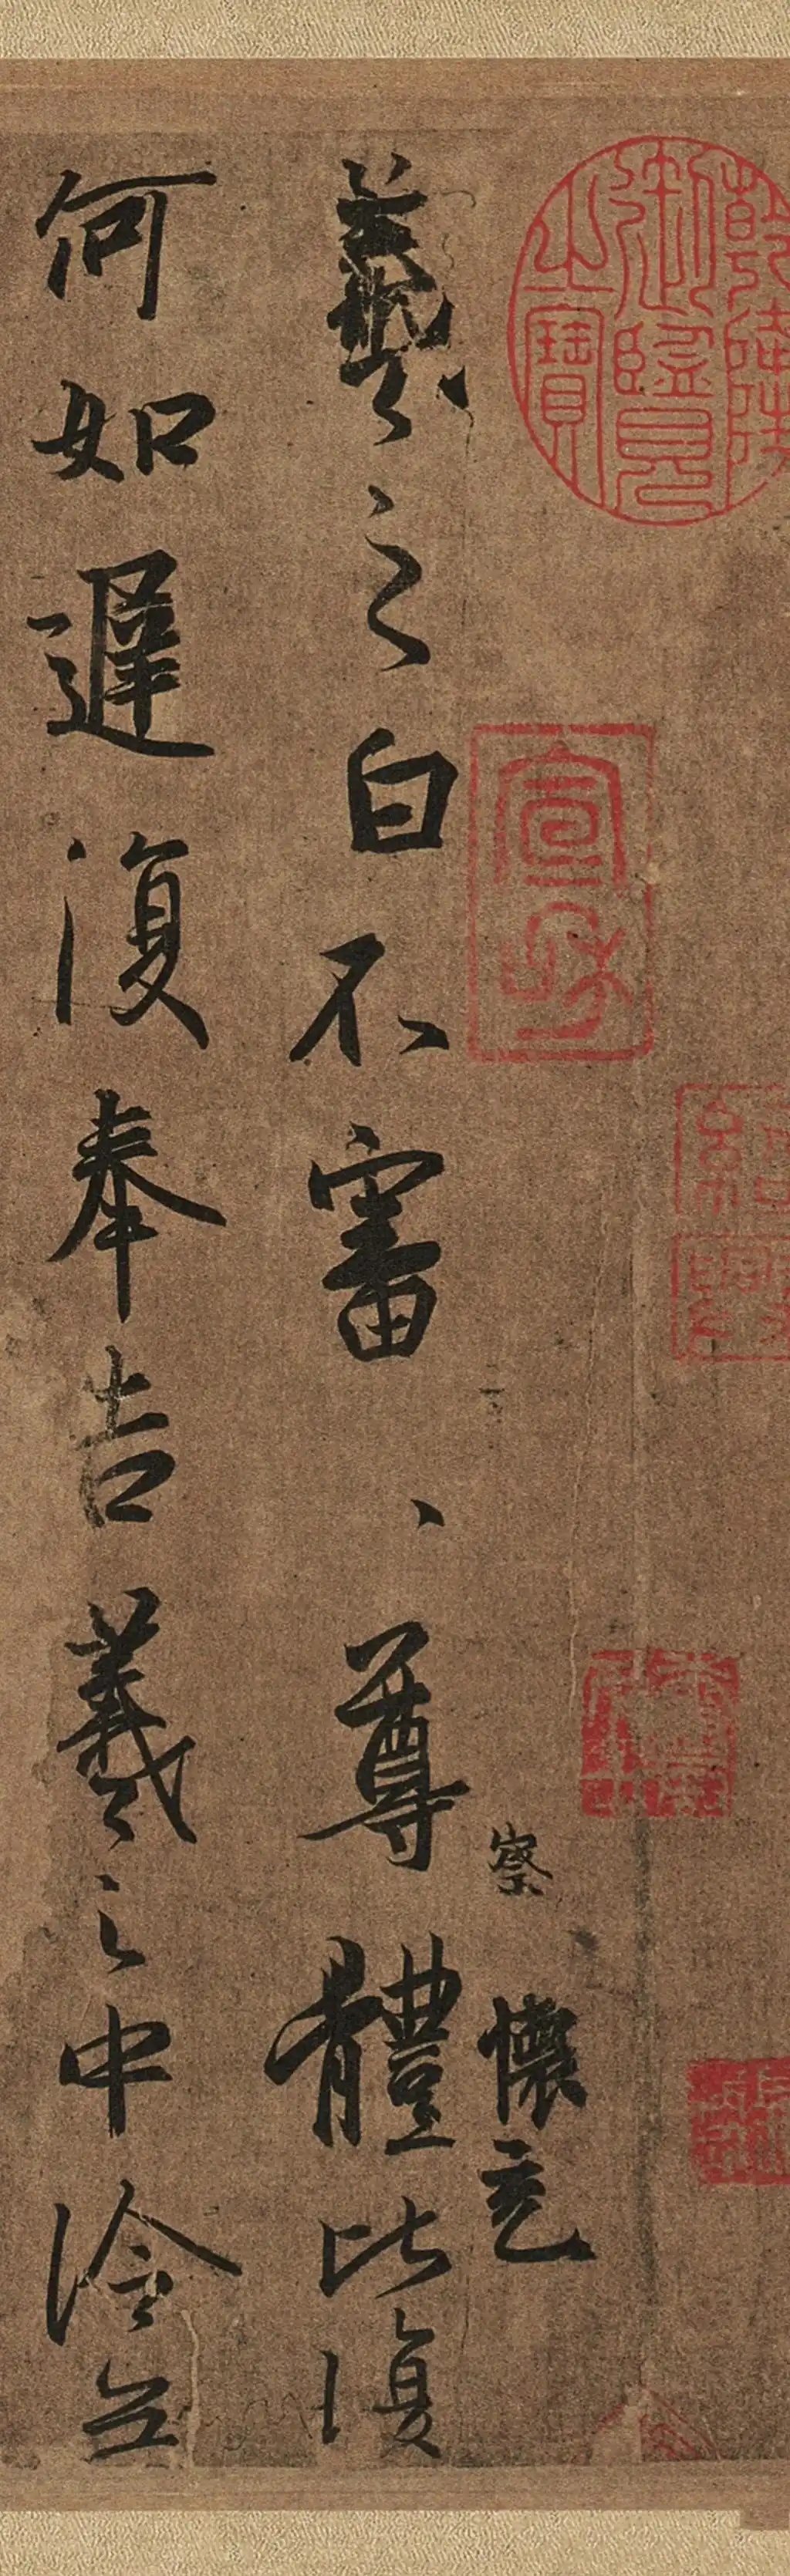 乾隆御覽之寶
紹興
宣和
察 懷充
羲之白不審、尊體比復
何如遲復奉告羲之中冷無